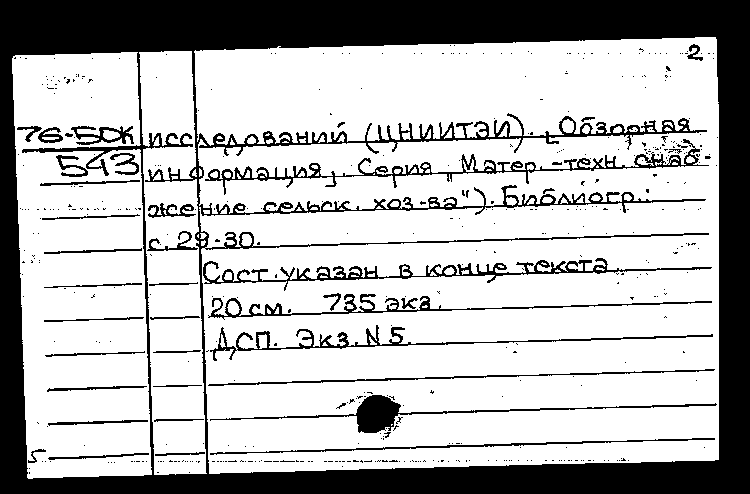 2
76-5DK исследований (ЦНИИТЭИ). [Обзорная
543 информация]. Серия "Матер.-техн. снаб-
жение сельск. хоз-ва"). Библиогр.:
с. 29-30.
Сост. указан в конце текста
20 см. 735 экз.
ДСП. Экз. N 5.
5